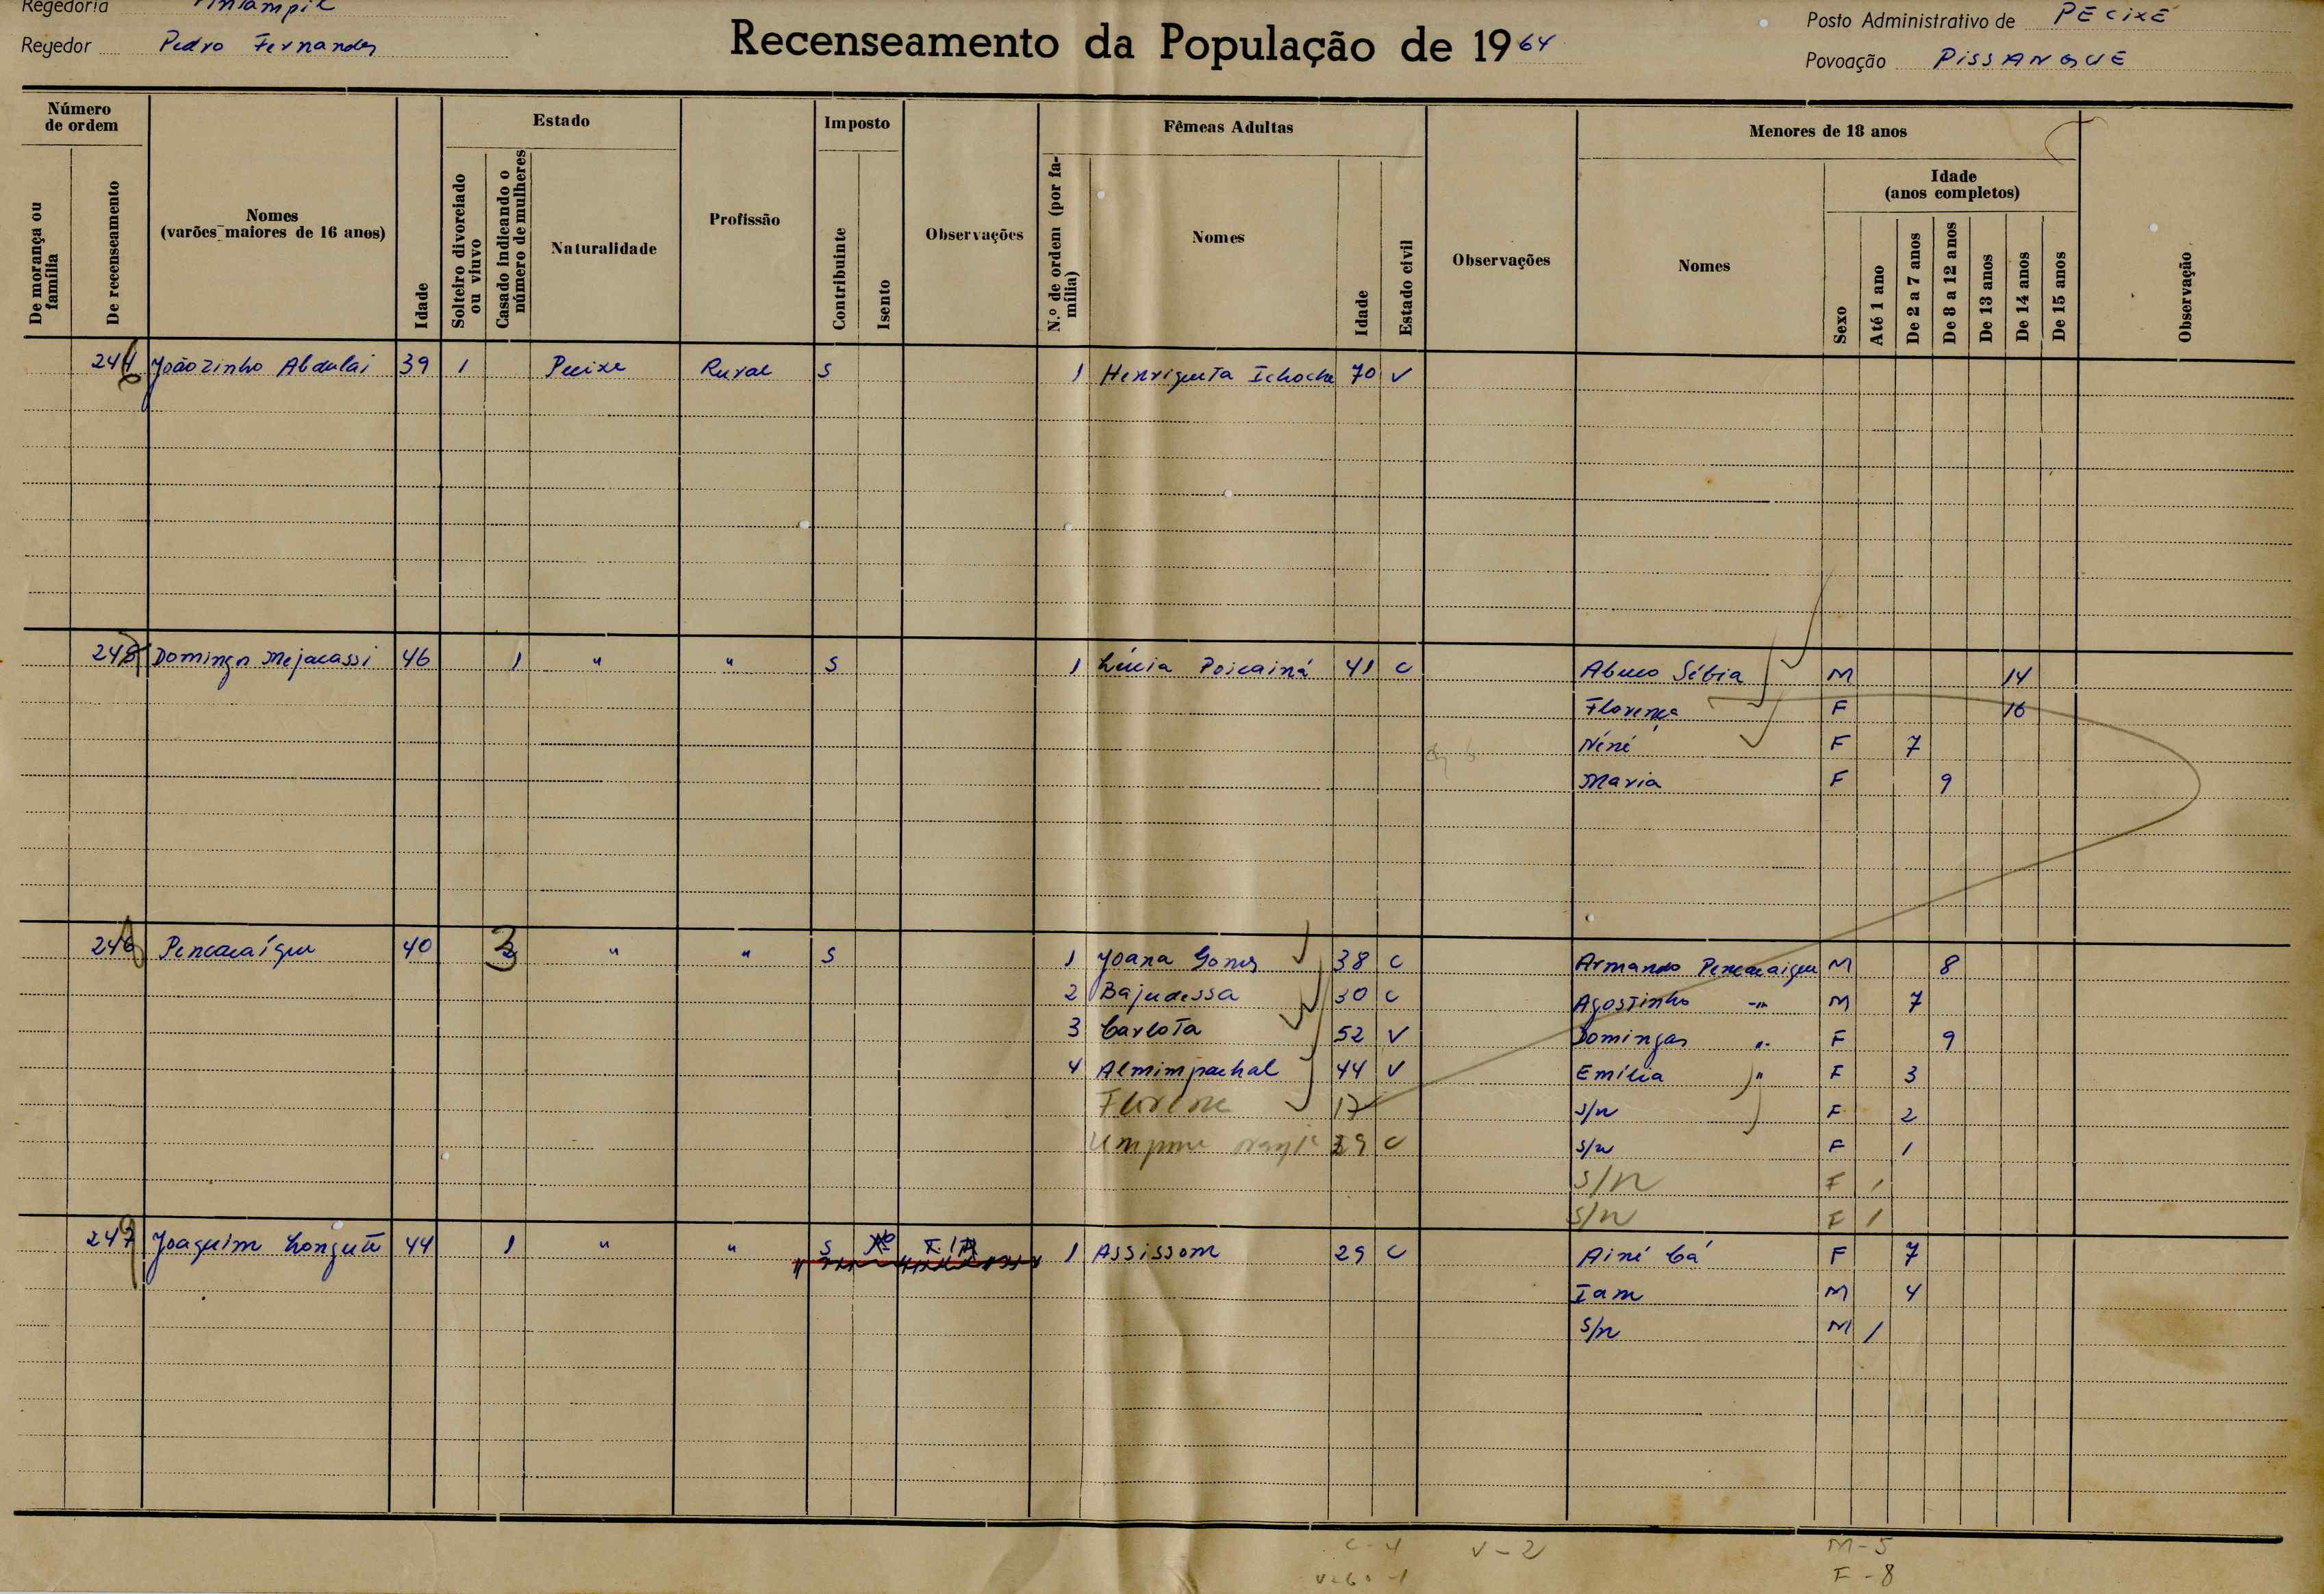 Regedoria
Regedor Pedro Fernandes
Recenseamento da População de 1964
Posto Administrativo de PECIXE
Povoação PISSANGUE
Número de ordem
De morança ou família
De recenseamento
Nomes
(varões maiores de 16 anos)
Idade
Estado
Solteiro divorciado ou viuvo
Casado indicando o número de mulheres
Naturalidade
Profissão
Imposto
Contribuinte
Isento
Observações
Fêmeas Adultas
N.º de ordem (por família)
Nomes
Idade
Estado civil
Observações
Menores de 18 anos
Nomes
Sexo
Idade
(anos completos)
Até 1 ano
De 2 a 7 anos
De 8 a 12 anos
De 13 anos
De 14 anos
De 15 anos
Observação
Joãozinho Abdulai 39 1 Pecixe Rural S 1 Henriqueta Ichoche 70 V
Domingos Mejacassi 46 1 " " S 1 Lúcia Poicainá 41 C Sébia M 14
Florença F 16
Néné F 7
Maria F 9
Pencacaígue 40 3 " " S 1 Joana Gomes 38 C Armando Pencacaigue M 8
2 Bajudessa 30 C Agostinho -"- M 7
3 Carlota 52 V Domingas " F 9
4 Almimpachal 44 V Emília " F 3
17 s/n F 2
29 C s/n F 1
S/N F 1
S/N F 1
Joaquim 44 1 " " S 1 Assissom 29 C Ainé Cá F 7
Iam M 4
s/n M 1
C - 4 V - 2 M - 5
F - 8